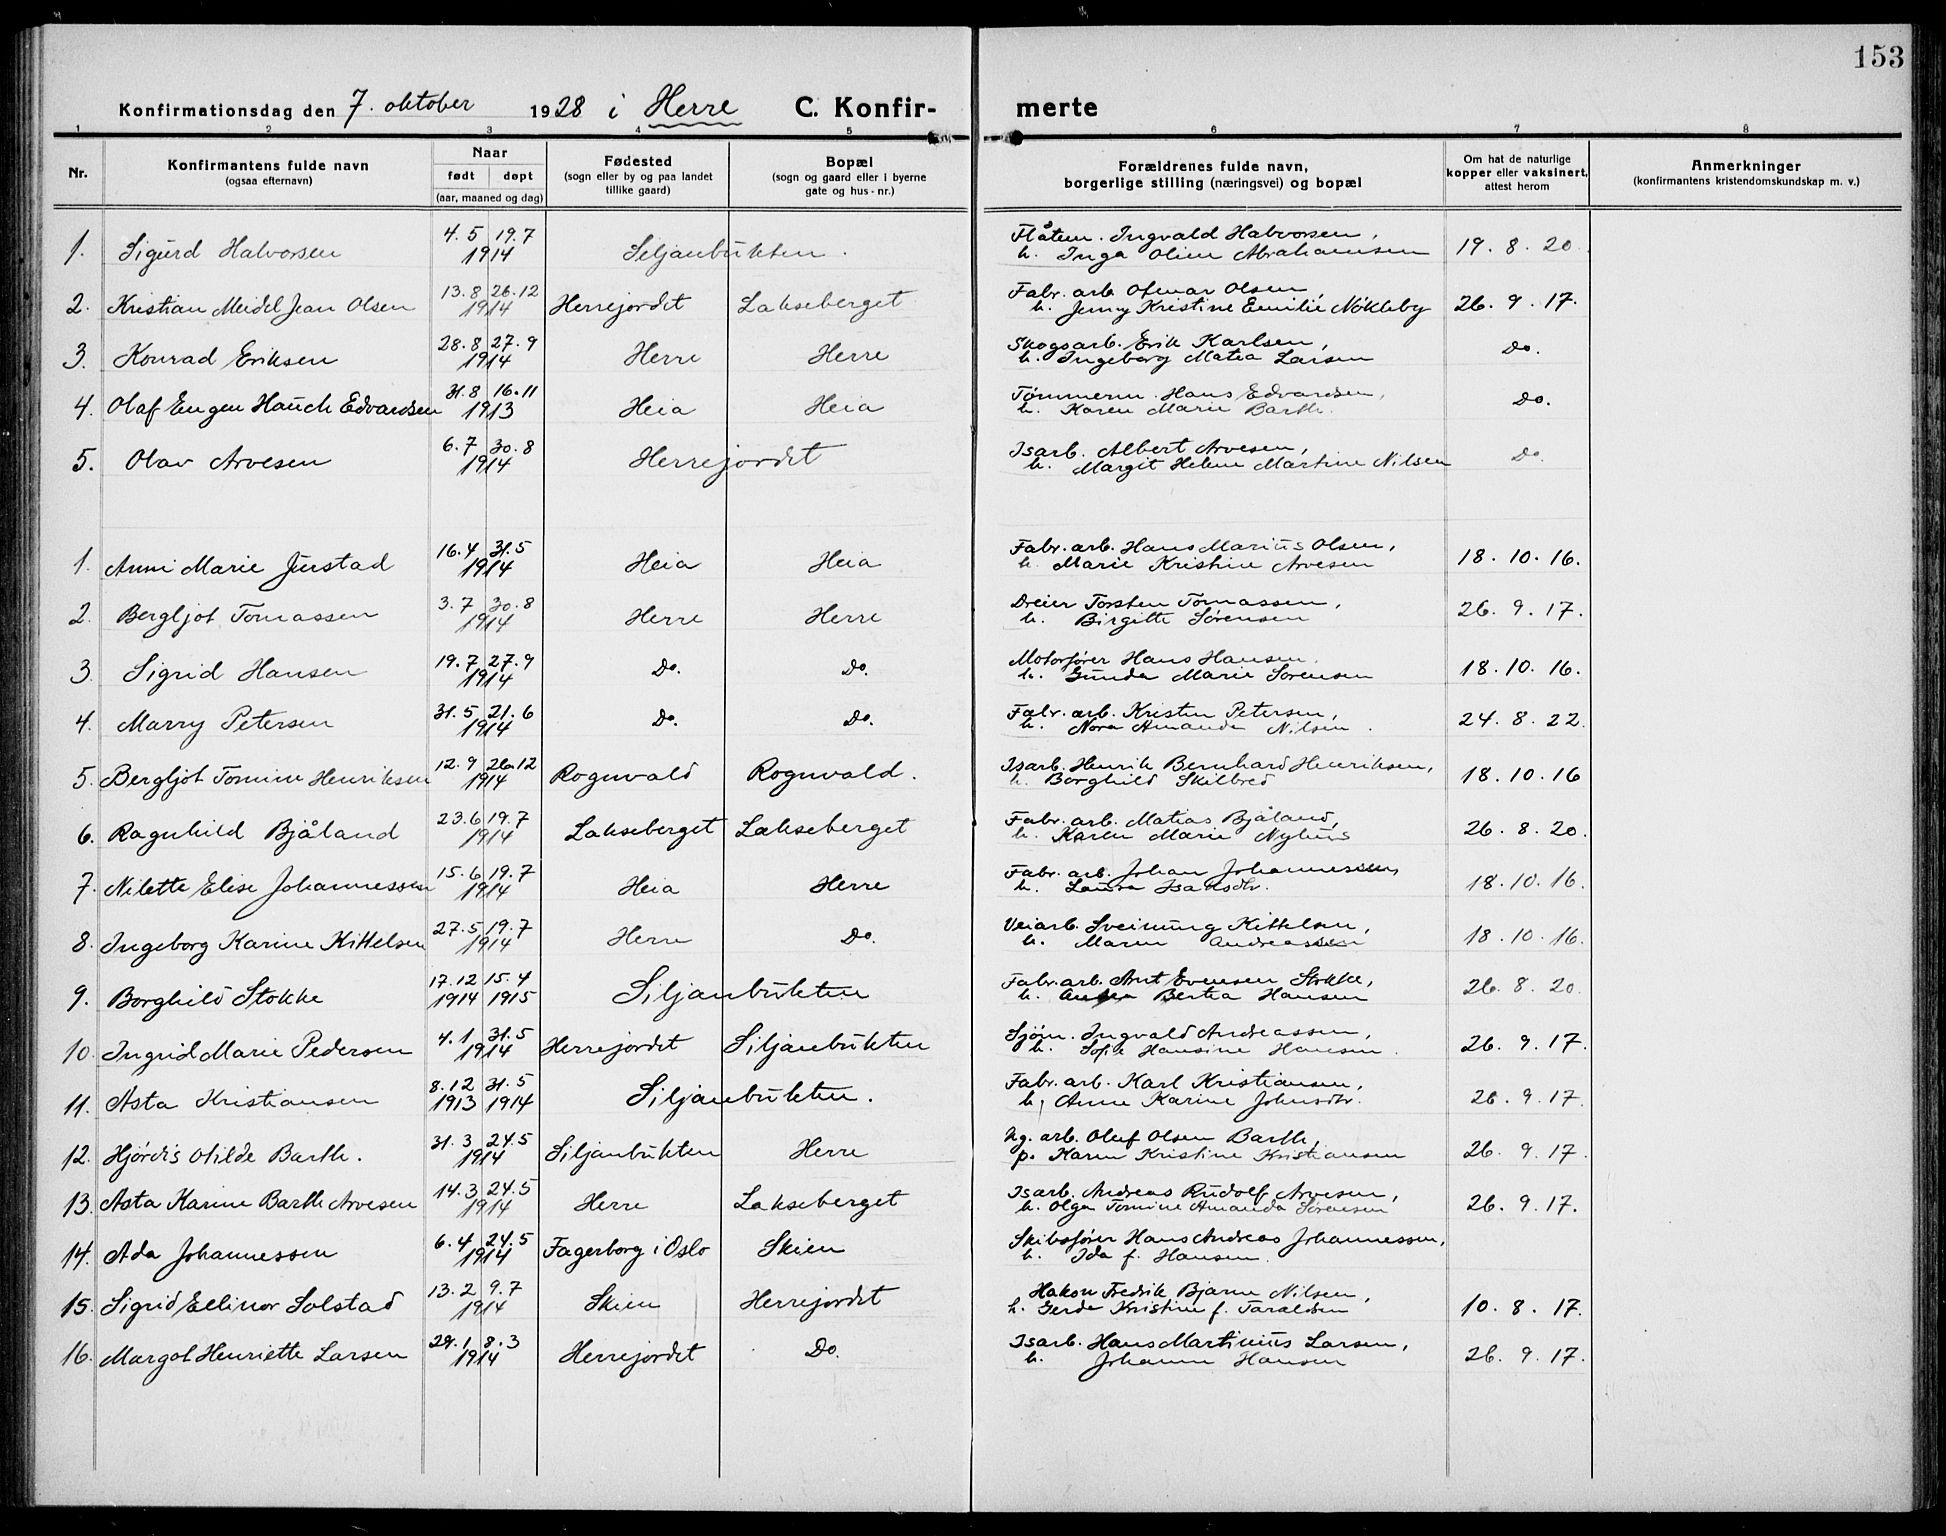 153
Konfirmationsdag den 7. oktober 1928 i Herre C. Konfir- merte
1 2 3 4 5 6 7 8
Nr. Konfirmantens fulde navn (ogsaa efternavn) Naar født døpt (aar, maaned og dag) Fødested (sogn eller by og paa landet tillike gaard) Bopæl (sogn og gaard eller i byerne gate og hus-nr.) Forældrenes fulde navn, borgerlige stilling (næringsvei) og bopæl Om hat de naturlige kopper eller vaksinert, attest herom Anmerkninger (konfirmantens kristendomskundskap m. v.)
1. Sigurd Halvorsen 4.5 19.7 1914 Siljanbukten. Flåtem. Ingvald Halvorsen, h. Inga Oline Abrahamsen 19.8.20.
2. Kristian Meidel Jean Olsen 13.8 26.12 1914 Herrejordet Lakseberget Fabr. arb. Ofmar Olsen, h. Jenny Kristine Emilie Nökleby 26.9.17.
3. Konrad Eriksen 28.8 27.9 1914 Herre Herre Skogsarb. Erik Karlsen, h. Ingeborg Matea Larsen Do.
4. Olaf Eugen Hauch Edvardsen 31.8 16.11 1913 Heia Heia Tømmerm. Hans Edvardsen, h. Karen Marie Barth. Do.
5. Olav Arvesen 6.7 30.8 1914 Herrejordet Isarb. Albert Arvesen, h. Margit Helene Martine Nilsen Do.
1. Anni Marie Jurstad 16.4 31.5 1914 Heia Heia Fabr. arb. Hans Marius Olsen, h. Marie Kristine Arvesen 18.10.16.
2. Bergljot Tomassen 3.7 30.8 1914 Herre Herre Dreier Torsten Tomassen, h. Birgitte Sørensen 26.9.17.
3. Sigrid Hansen 19.7 27.9 1914 Do. Do. Motorfører Hans Hansen, h. Gunda Marie Sørensen 18.10.16.
4. Marry Petersen 31.5 21.6 1914 Do. Do. Fabr. arb. Kristen Petersen, h. Nora Amanda Nilsen. 24.8.22.
5. Bergljot Tomine Henriksen 12.9 26.12 1914 Rognvald Rognvald. Isarb. Henrik Bernhard Henriksen, h. Borghild Skilbred 18.10.16
6. Ragnhild Bjåland 23.6 19.7 1914 Lakseberget Lakseberget Fabr. arb. Matias Bjåland, h. Karen Marie Nyhus 26.8.20.
7. Nilette Elise Johannessen 15.6 19.7 1914 Heia Herre Fabr. arb. Johan Johannessen, h. Laura Isaksdtr. 18.10.16.
8. Ingeborg Karine Kittelsen 27.5 19.7 1914 Herre Do. Veiarb. Sveinung Kittelsen, h. Maren Andreassen 18.10.16.
9. Borghild Stokke 17.12 1914 15.4 1915 Siljanbukten Fabr. arb. Anut Evensen Stokke, h. Bertea Hansen 26.8.20.
10. Ingrid Marie Pedersen 4.1 31.5 1914 Herrejordet Siljanbukten Sjøm. Ingvald Andreassen, h. Sofie Hansine Hansen. 26.9.17.
11. Asta Kristiansen 8.12 1913 31.5 1914 Siljanbukten. Fabr. arb. Karl Kristiansen, h. Anne Karine Johnsdtr. 26.9.17.
12. Hjørdis Otilde Barth. 31.3 24.5 1914 Siljanbukten Herre Ug. arb. Oluf Olsen Barth, p. Karen Kristine Kristiansen 26.9.17.
13. Asta Karine Barth Arvesen 14.3 24.5 1914 Herre Lakseberget Isarb. Andreas Rudolf Arvesen, h. Olga Tomine Amanda Sørensen 26.9.17.
14. Ada Johannessen 6.4 24.5 1914 Fagerborg i Oslo Skien Skibsfører Hans Andreas Johannessen, h. Ida f. Hansen.
15. Sigrid Ellinor Solstad 13.2 9.7 1914 Skien Herrejordet Hakon Fredrik Bjarne Nilsen, h. Gerda Kristine f. Taraldsen 10.8.17.
16. Margot Henriette Larsen 29.1 8.3 1914 Herrejordet Do. Isarb. Hans Martinius Larsen, h. Johanne Hansen 26.9.17.